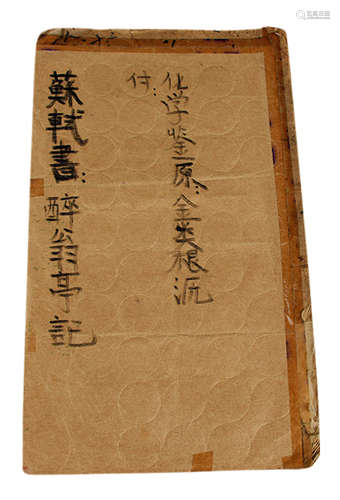 化学鉴原:金类根沅
付:
蘇軾書:醉翁亭記